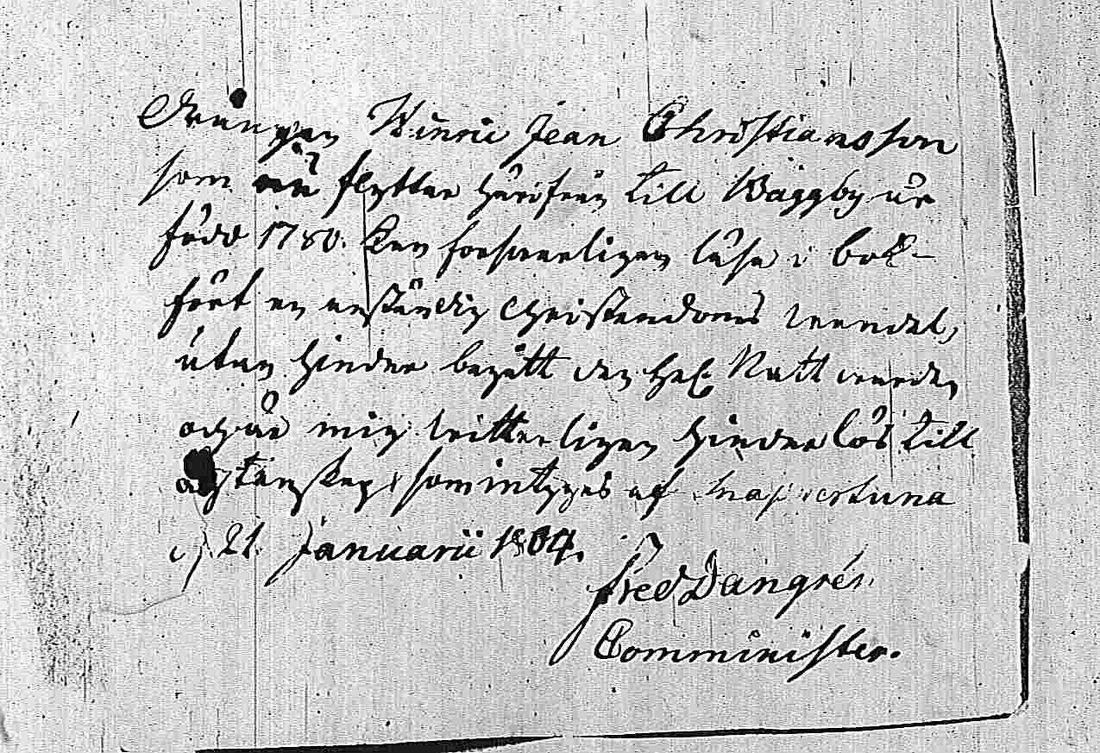 Drängen Hinric Jean Christiansson
som nu flyttar härifrån till Bäggby är
född 1780. kan försvarligen läsa i bok
fört en anständig Christendoms vandel,
utan hinder begått den Hel. Nattvarden
och är mig vitterligen hinderlös till
ägtenskap, som intygas af Snappertuna
d. 21. Januarii 1804.
Fred Dangrén
Comminister.